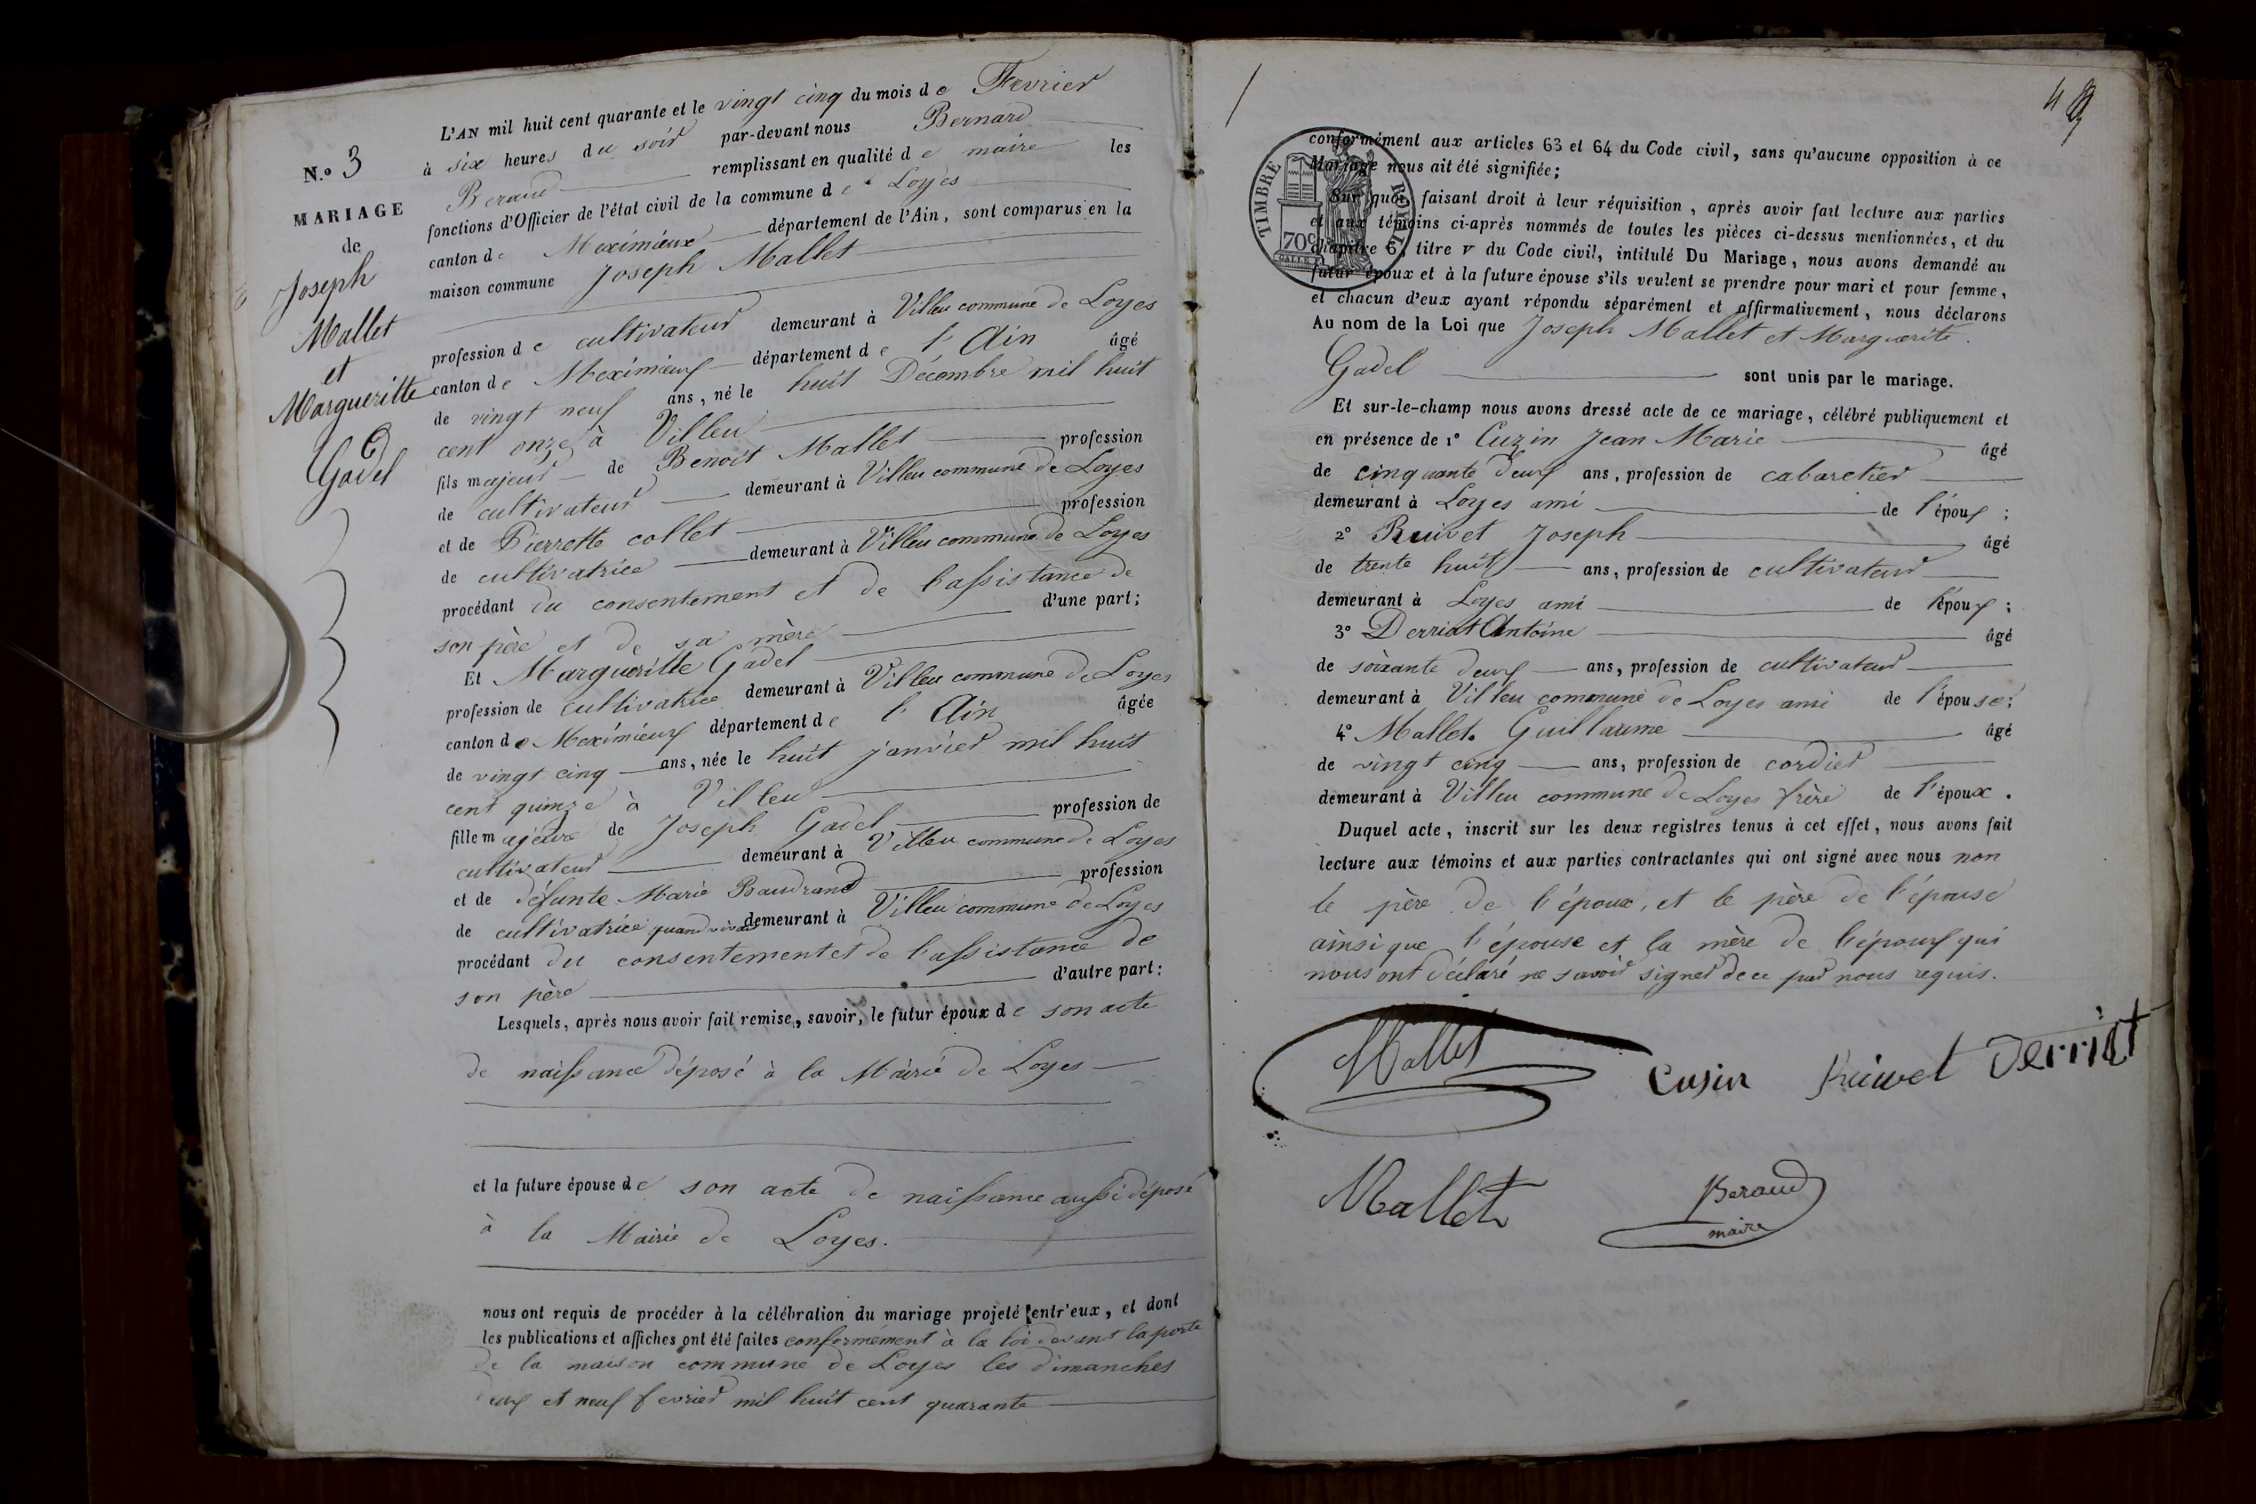 N.º 3
MARIAGE
de
Joseph
Mallet
et
Margueritte
Gadel
L'AN mil huit cent quarante et le vingt cinq du mois de Fevrier
à six heures du soir par-devant nous Bernard
Beraud remplissant en qualité de maire les
fonctions d'Officier de l'état civil de la commune de Loyes
canton de Meximieux département de l'Ain, sont comparus en la
maison commune Joseph Mallet
profession de cultivateur demeurant à Villeu commune de Loyes
canton de Meximieux département de l'Ain âgé
de vingt neuf ans, né le huit Décembre mil huit
cent onze à Villeu
fils majeur de Benoit Mallet profession
de cultivateur demeurant à Villeu commune de Loyes
et de Pierrette collet profession
de cultivatrice demeurant à Villeu commune de Loyes
procédant du consentement et de l'assistance de
son père et de sa mère d'une part;
Et Margueritte Gadel
profession de cultivatrice demeurant à Villeu commune de Loyes
canton de Meximieux département de l'Ain âgée
de vingt cinq ans, née le huit janvier mil huit
cent quinze à Villeu
fille majeure de Joseph Gadel profession de
cultivateur demeurant à Villeu commune de Loyes
et de défunte Marie Baudrand profession
de cultivatrice quand vivait demeurant à Villeu commune de Loyes
procédant du consentement et de l'assistance de
son père d'autre part:
Lesquels, après nous avoir fait remise, savoir, le futur époux de son acte
de naissance déposé à la Mairie de Loyes
et la future épouse de son acte de naissance aussi déposé
à la Mairie de Loyes.
nous ont requis de procéder à la célébration du mariage projeté entr'eux, et dont
les publications et affiches ont été faites conformément à la loi devant la porte
de la maison commune de Loyes les dimanches
deux et neuf fevrier mil huit cent quarante
TIMBRE ROYAL
70c
conformément aux articles 63 et 64 du Code civil, sans qu'aucune opposition à ce
Mariage nous ait été signifiée;
Sur quoi, faisant droit à leur réquisition, après avoir fait lecture aux parties
et aux témoins ci-après nommés de toutes les pièces ci-dessus mentionnées, et du
chapitre 6, titre v du Code civil, intitulé Du Mariage, nous avons demandé au
futur époux et à la future épouse s'ils veulent se prendre pour mari et pour femme,
et chacun d'eux ayant répondu séparément et affirmativement, nous déclarons
Au nom de la Loi que Joseph Mallet et Marguerite
Gadel sont unis par le mariage.
Et sur-le-champ nous avons dressé acte de ce mariage, célébré publiquement et
en présence de 1º Cuzin Jean Marie âgé
de cinquante deux ans, profession de cabaretier
demeurant à Loyes ami de l'époux;
2º Ruivet Joseph âgé
de trente huit ans, profession de cultivateur
demeurant à Loyes ami de l'époux;
3º Derriat Antoine âgé
de soixante deux ans, profession de cultivateur
demeurant à Villeu commune de Loyes ami de l'épouse;
4º Mallet Guillaume âgé
de vingt cinq ans, profession de cordier
demeurant à Villeu commune de Loyes frère de l'époux.
Duquel acte, inscrit sur les deux registres tenus à cet effet, nous avons fait
lecture aux témoins et aux parties contractantes qui ont signé avec nous non
le père de l'époux, et le père de l'épouse
ainsi que l'épouse et la mère de l'époux qui
nous ont déclaré ne savoir signer de ce par nous requis.
Mallet Cusin Ruivet Derriat
Mallet Beraud
maire